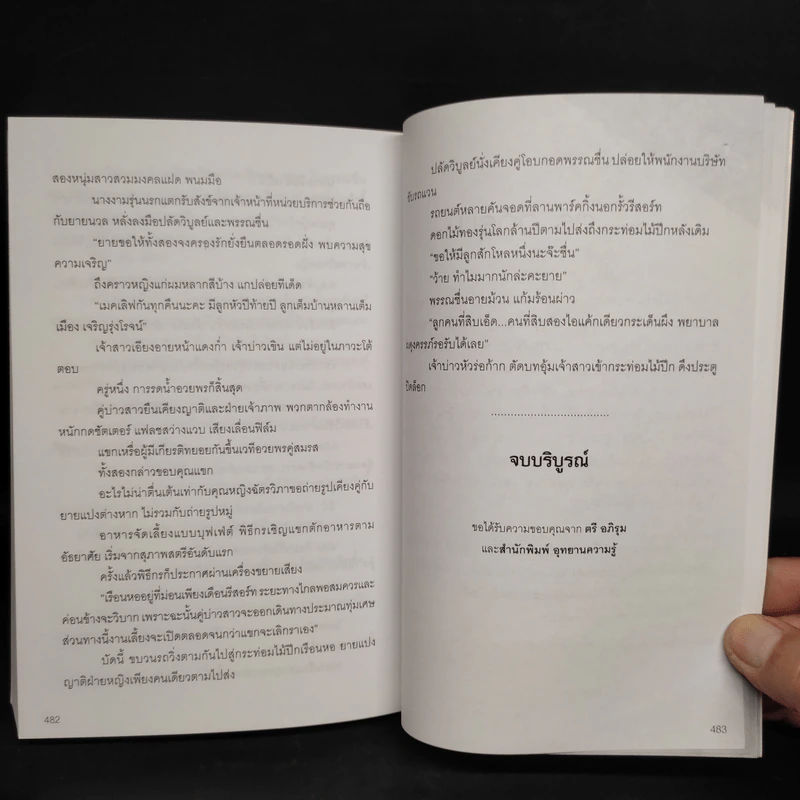 สองหนุ่มสาวสวมมงคลแฝด พนมมือ
นางงามรุ่นนรกแตกรับสังข์จากเจ้าหน้าที่หน่วยบริการช่วยกันถือ
กับยายนวล หลั่งลงมือปลัดวิบูลย์และพรรณชื่น
"ยายขอให้ทั้งสองจงครองรักยั่งยืนตลอดรอดฝั่ง พบความสุข
ความเจริญ"
ถึงคราวหญิงแก่ผมหลากสีบ้าง แกปล่อยทีเด็ด
"เมคเลิฟกันทุกคืนนะคะ มีลูกหัวปีท้ายปี ลูกเต็มบ้านหลานเต็ม
เมือง เจริญรุ่งโรจน์"
เจ้าสาวเอียงอายหน้าแดงก่ำ เจ้าบ่าวเขิน แต่ไม่อยู่ในภาวะโต้
ตอบ
ครู่หนึ่ง การรดน้ำอวยพรก็สิ้นสุด
คู่บ่าวสาวยืนเคียงญาติและฝ่ายเจ้าภาพ พวกตากล้องทำงาน
หนักกดชัตเตอร์ แฟลชสว่างแวบ เสียงเลื่อนฟิล์ม
แขกเหรื่อผู้มีเกียรติทยอยกันขึ้นเวทีอวยพรคู่สมรส
ทั้งสองกล่าวขอบคุณแขก
อะไรไม่น่าตื่นเต้นเท่ากับคุณหญิงฉัตรวิภาขอถ่ายรูปเคียงคู่กับ
ยายแปงต่างหาก ไม่รวมกับถ่ายรูปหมู่
อาหารจัดเลี้ยงแบบบุฟเฟ่ต์ พิธีกรเชิญแขกตักอาหารตาม
อัธยาศัย เริ่มจากสุภาพสตรีอันดับแรก
ครั้งแล้วพิธีกรก็ประกาศผ่านเครื่องขยายเสียง
"เรือนหออยู่ที่ม่อนเพียงเดือนรีสอร์ท ระยะทางไกลพอสมควรและ
ค่อนข้างจะวิบาก เพราะฉะนั้นคู่บ่าวสาวจะออกเดินทางประมาณทุ่มเศษ
ส่วนทางนี้งานเลี้ยงจะเปิดตลอดจนกว่าแขกจะเลิกราเอง"
บัดนี้ ขบวนรถวิ่งตามกันไปสู่กระท่อมไม้ปีกเรือนหอ ยายแปง
ญาติฝ่ายหญิงเพียงคนเดียวตามไปส่ง
482
ปลัดวิบูลย์นั่งเคียงคู่โอบกอดพรรณชื่น ปล่อยให้พนักงานบริษัท
ขับรถแวน
รถยนต์หลายคันจอดที่ลานพาร์คกิ้งนอกรั้วรีสอร์ท
ดอกไม้ทองรุ่นโลกล้านปีตามไปส่งถึงกระท่อมไม้ปีกหลังเดิม
"ขอให้มีลูกสักโหลหนึ่งนะจ๊ะชื่น"
"ว้าย ทำไมมากนักล่ะคะยาย"
พรรณชื่นอายม้วน แก้มร้อนผ่าว
"ลูกคนที่สิบเอ็ด...คนที่สิบสองไอแค้กเดียวกระเด็นผึง พยาบาล
ผดุงครรภ์รอรับได้เลย"
เจ้าบ่าวหัวร่อก๊าก ตัดบทอุ้มเจ้าสาวเข้ากระท่อมไม้ปีก ดึงประตู
ปิดล็อก
......................................
จบบริบูรณ์
ขอได้รับความขอบคุณจาก ตรี อภิรุม
และสำนักพิมพ์ อุทยานความรู้
483